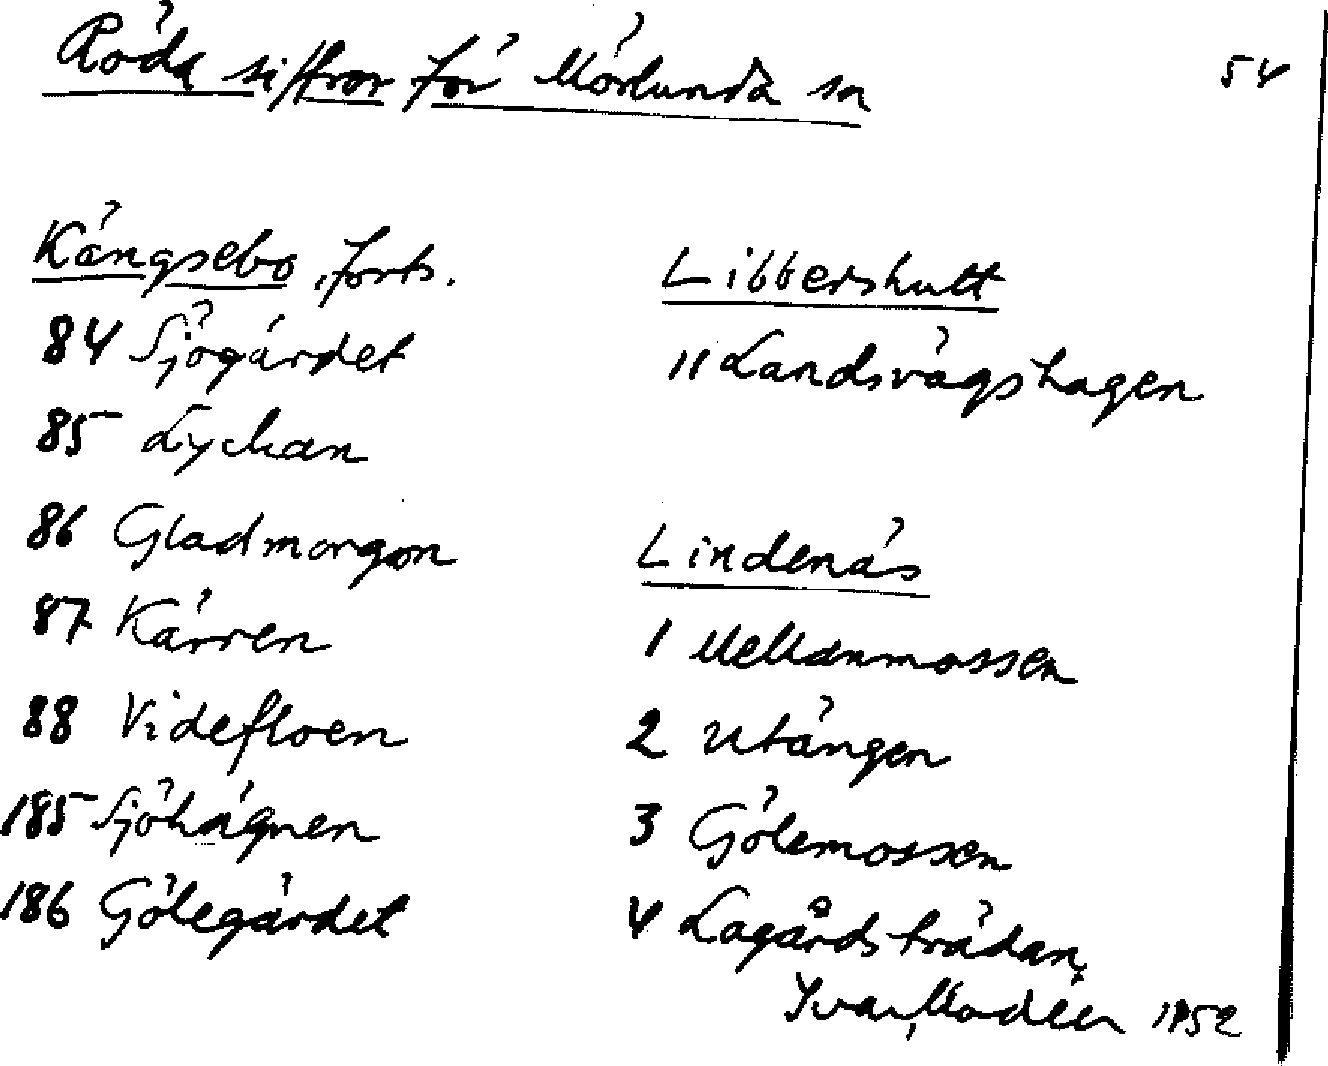 Röda siffror för Mörlunda sn
54
Kängsebo, forts.
84 Sjögärdet
85 Lyckan
86 Gladmorgon
87 Kärren
88 Videfloen
185 Sjöhägnen
186 Gölegärdet
Libbershult
11 Landsvägshagen
Lindenäs
1 Mellanmossen
2 Utängen
3 Gölemossen
4 Lagårdsträdan
Ivar Modéer 1952